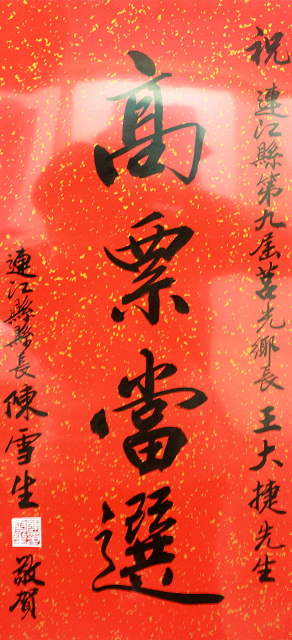 祝連江縣第九屆莒光鄉長王大捷先生
高票當選
連江縣縣長陳雪生敬賀